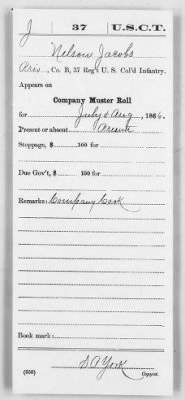 J 37 U.S.C.T.
Nelson Jacobs
Priv, Co. B, 37 Reg't U. S. Col'd Infantry.
Appears on
Company Muster Roll
for July & Aug, 1866.
Present or absent Present
Stoppage, $ 100 for
Due Gov't, $ 100 for
Remarks: Company Cook
Book mark:
S A York
(358) Copyist.